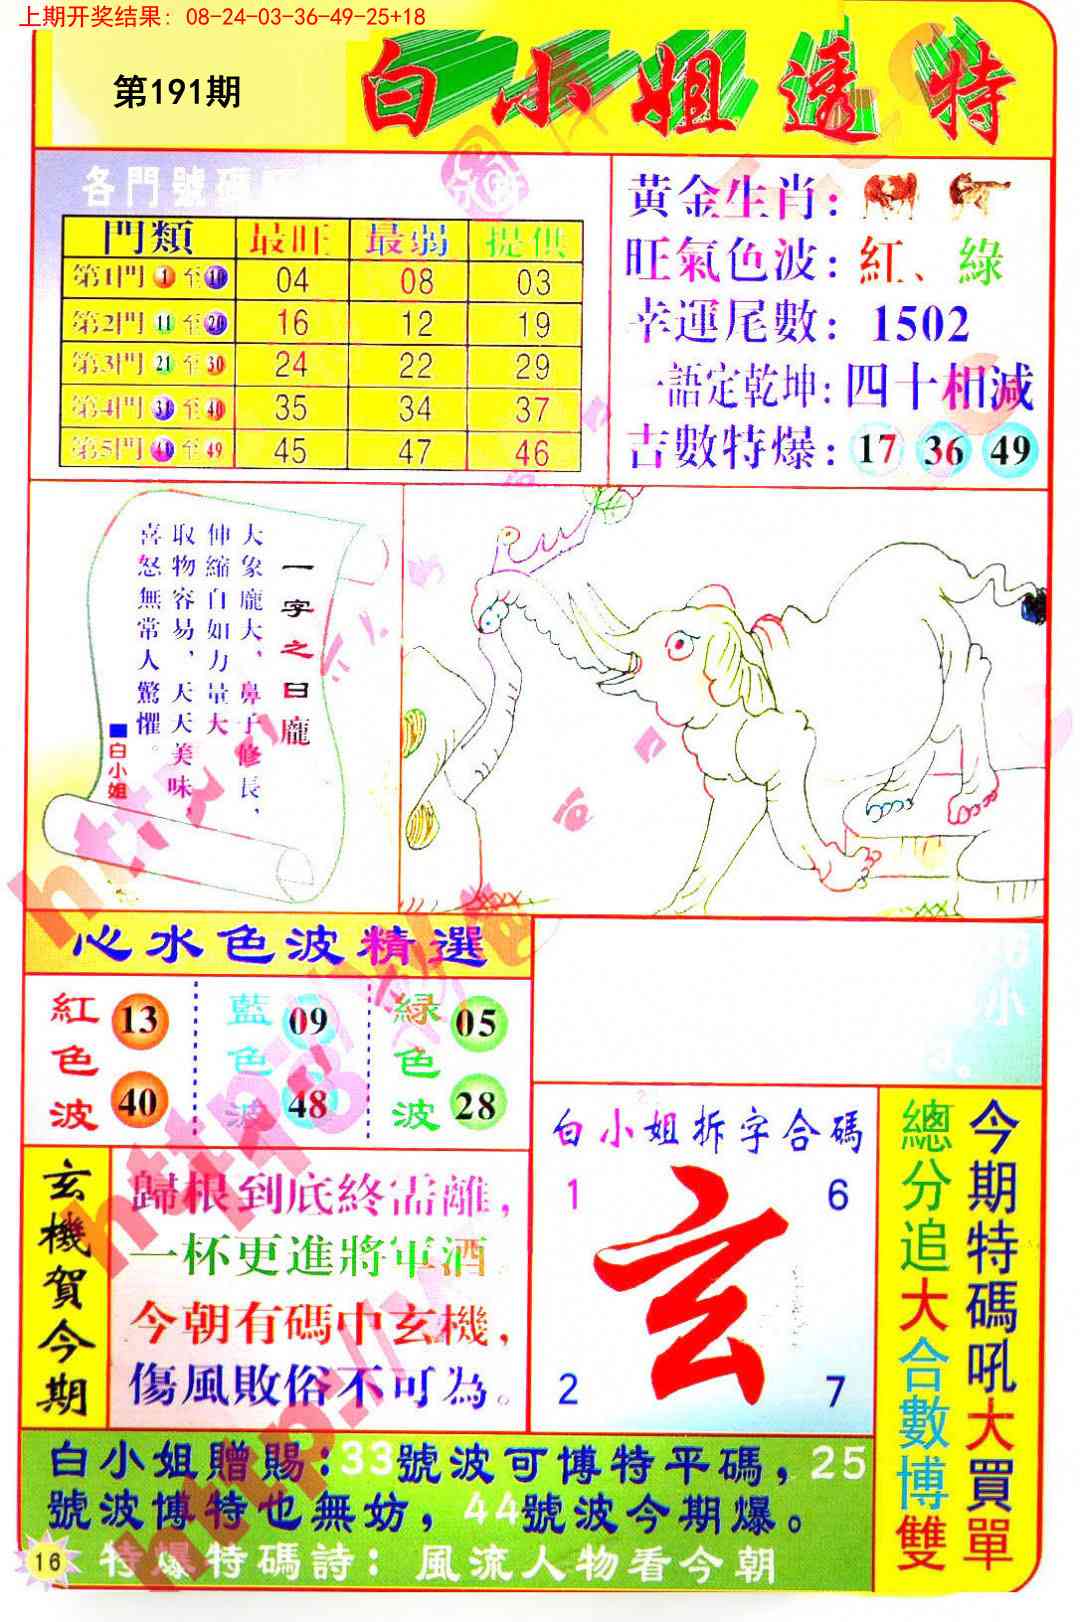 上期开奖结果: 08-24-03-36-49-25+18
第191期
白小姐透特
各門號碼
門類 最旺 最弱 提供
第1門 1 至 10 04 08 03
第2門 11 至 20 16 12 19
第3門 21 至 30 24 22 29
第4門 31 至 40 35 34 37
第5門 41 至 49 45 47 46
黃金生肖:
旺氣色波: 紅、綠
幸運尾數: 1502
一語定乾坤: 四十相減
吉數特爆: 17 36 49
一字之曰龐
大象龐大、鼻子修長,
伸縮自如力量大
取物容易,天天美味,
喜怒無常人驚懼。
■白小姐
心水色波精選
紅色波 13 40
藍色波 09 48
綠色波 05 28
玄機賀今期
歸根到底終需離,
一杯更進將軍酒
今朝有碼中玄機,
傷風敗俗不可為。
白小姐拆字合碼
1 6
玄
2 7
今期特碼吼大買單
總分追大合數博雙
白小姐贈賜:33號波可博特平碼,25
號波博特也無妨,44號波今期爆。
特爆特碼詩: 風流人物看今朝
16